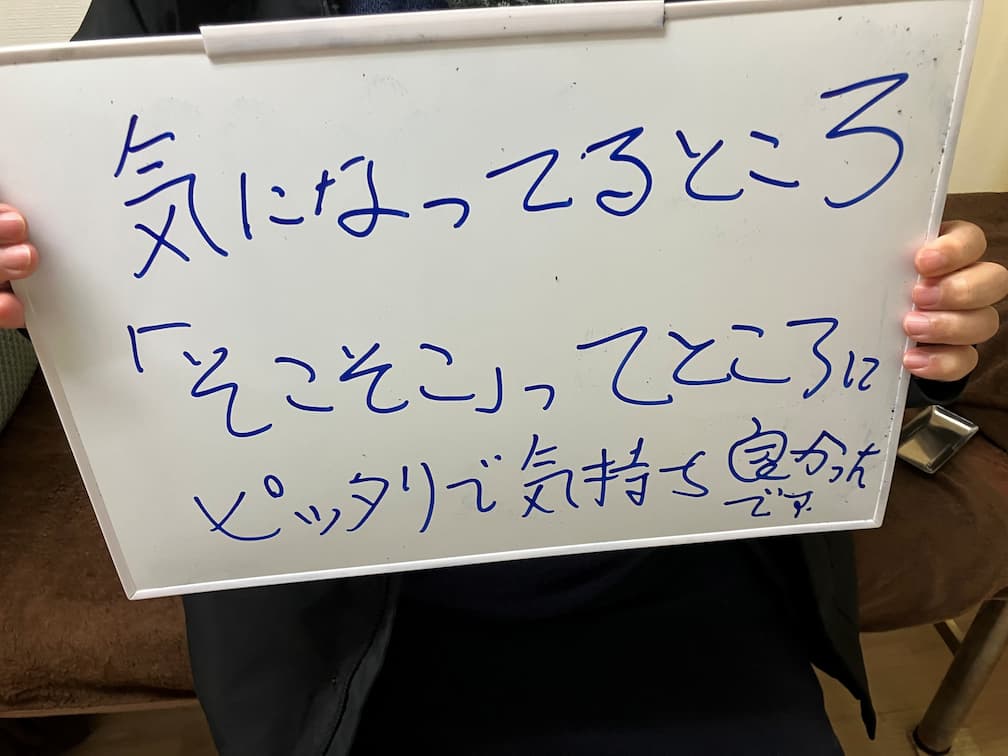 気になってるところ
「そこそこ」ってところに
ピッタリで気持ち良かった
です。